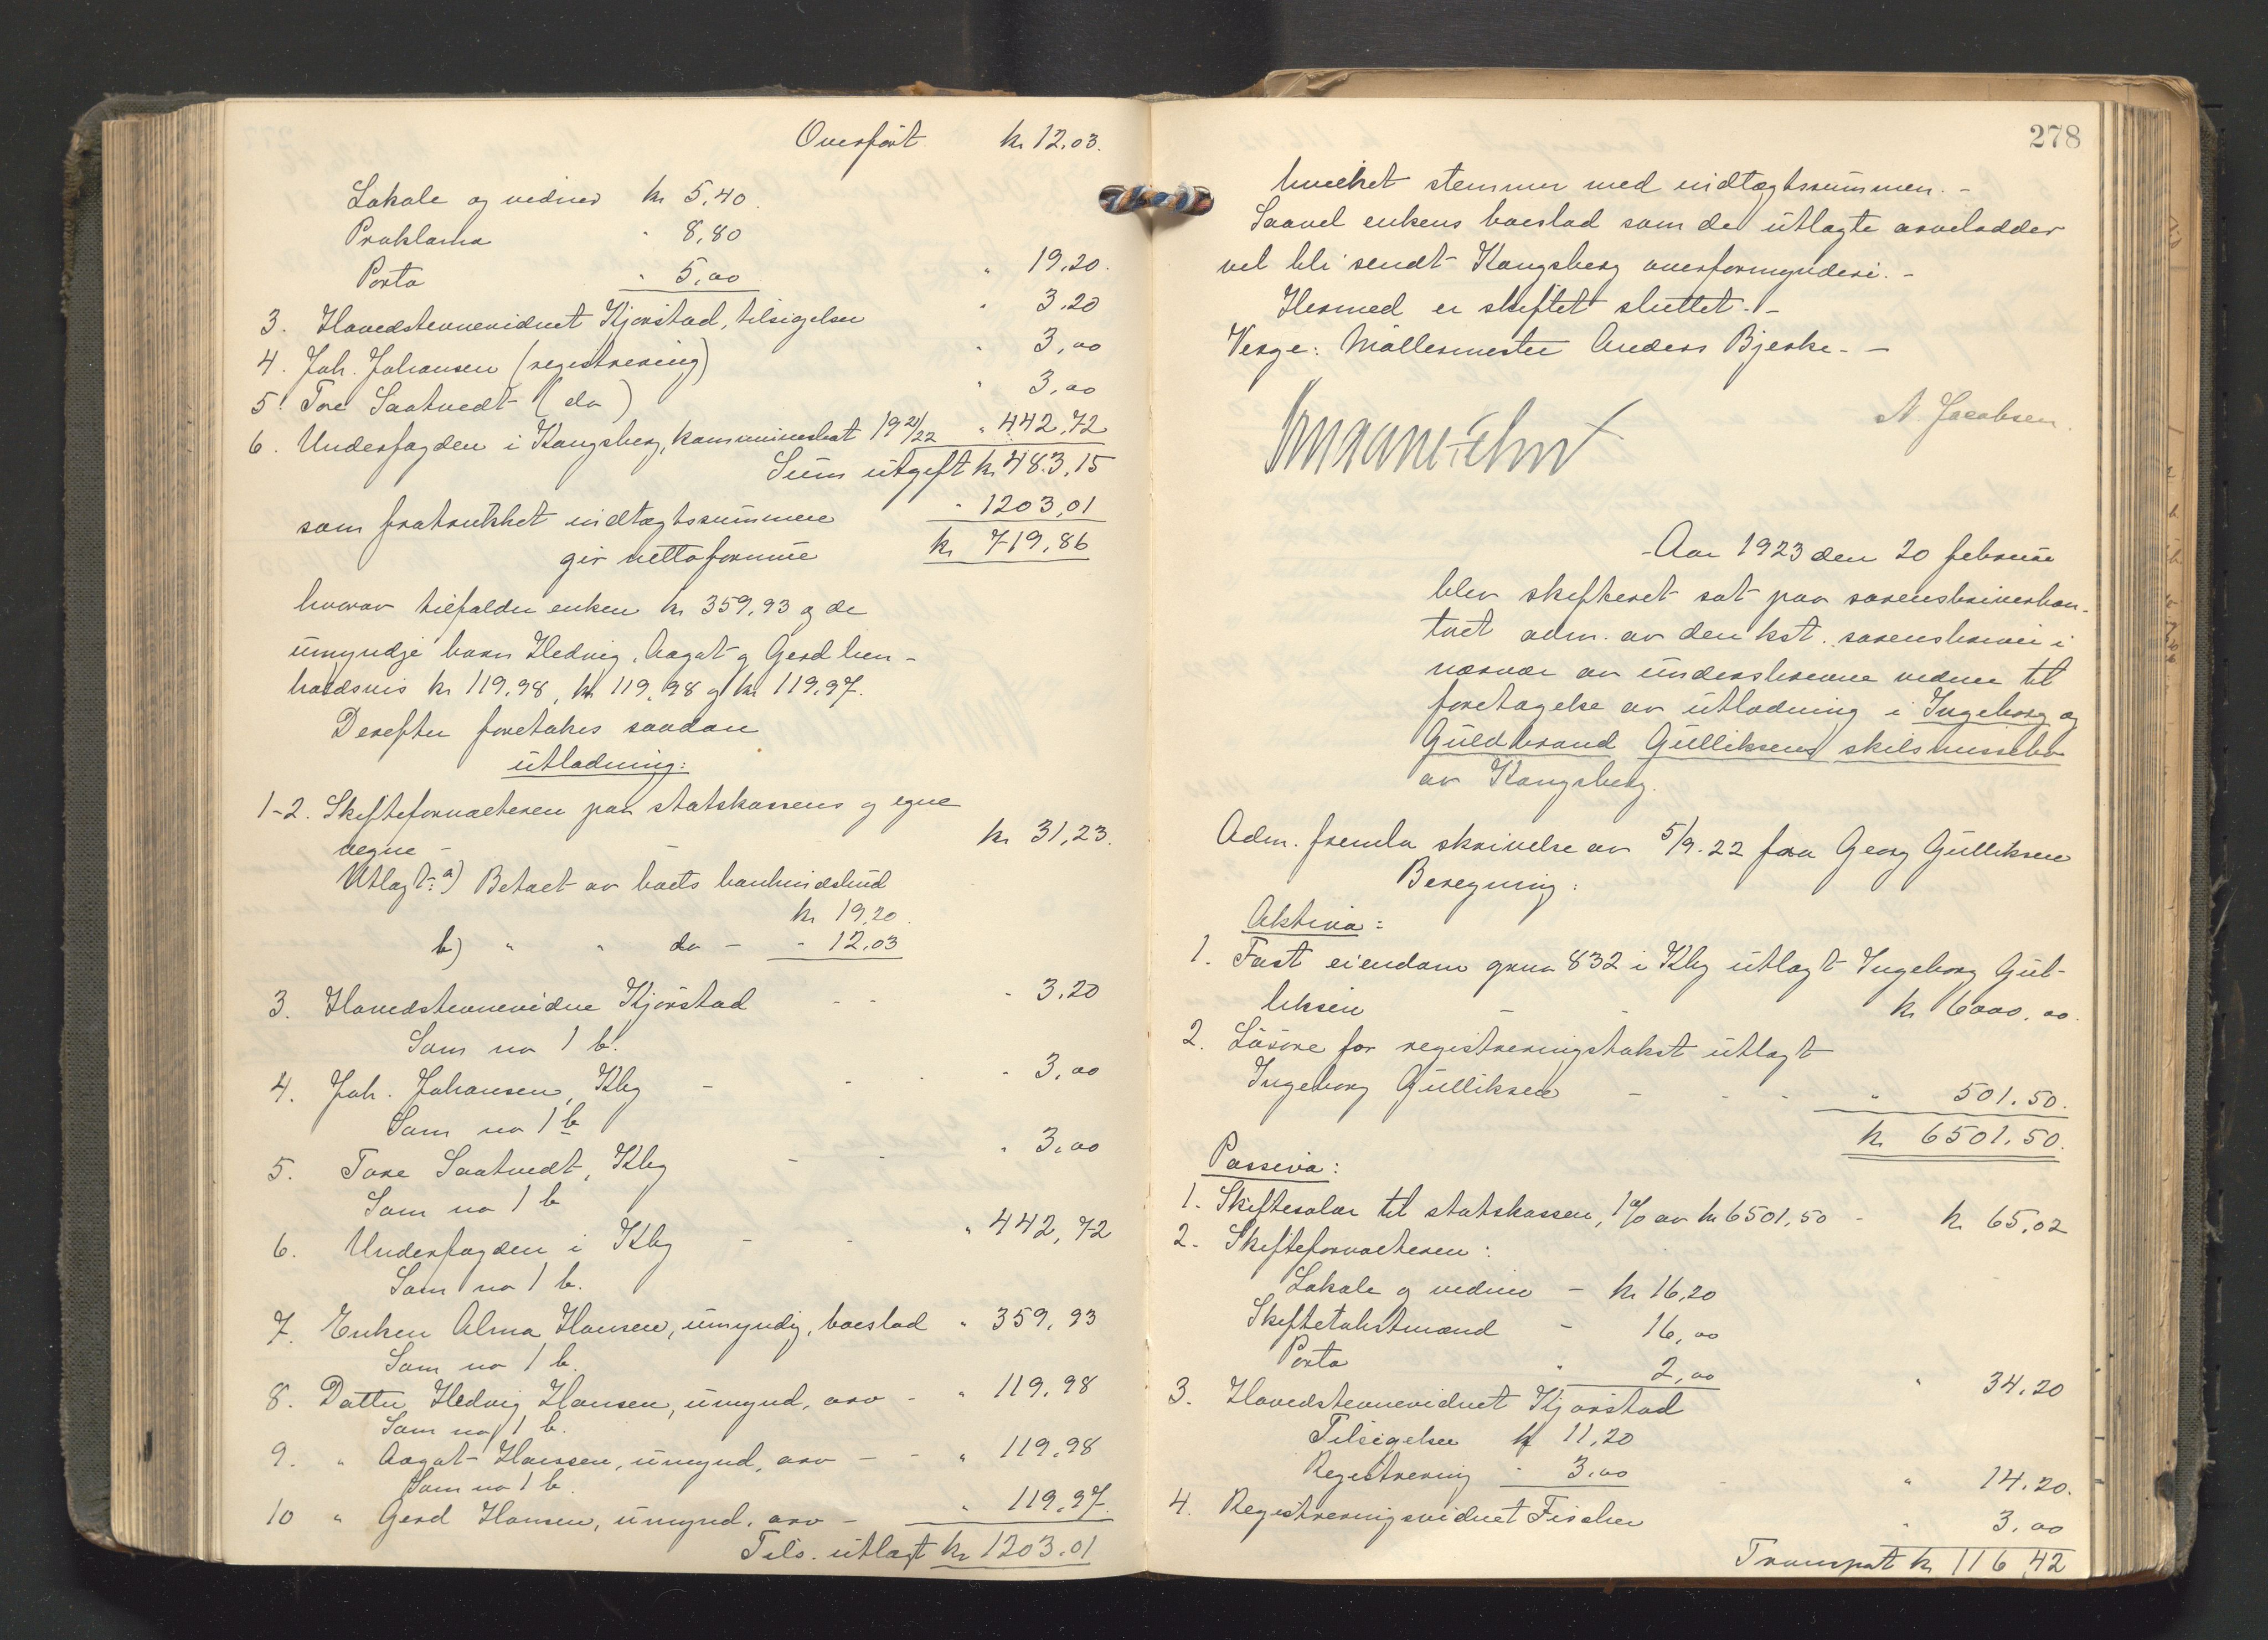 Overført kr 12.03.
Lokale og vidner kr 5,40.
Proklama " 8,80
Porto " 5,00 " 19,20.
3. Hovedstevnevidnet Kjørstad, tilsigelser " 3,20
4. Joh. Johansen (registrering) " 3,00
5. Tore Saatvedt (do) " 3,00
6. Underfogden i Kongsberg, kommuneskat 1921/22 " 442,72
Sum utgift kr 483,15
som fratrukket indtægtssummen " 1203,01
gir nettoformue kr 719,86
hvorav tilfalder enken kr 359,93 og de
umyndige barn Hedvig, Aagot og Gerd hen-
holdsvis kr 119,98, kr 119,98 og kr 119,97.
Derefter foretakes saadan
utlodning:
1-2. Skifteforvalteren paa statskassens og egne
vegne - kr 31,23.
Utlagt: a) Betalt av boets bankindskud
kr 19,20.
b) " " do - - 12,03
3. Hovedstevnevidne Kjørstad - - - 3,20
Som no 1 b.
4. Joh. Johansen, Kbg - - - 3,00
Som no 1 b
5. Tore Saatvedt, Kbg - - " 3,00
Som no 1 b
6. Underfogden i Kbg - - " 442,72
Som no 1 b.
7. Enken Alma Hansen, umyndig, boeslod " 359,93
Som no 1 b.
8. Datter Hedvig Hansen, umynd, arv - " 119,98
Som no 1 b.
9. " Aagot Hansen, umynd, arv - - " 119,98
Som no 1 b.
10 " Gerd Hansen, umynd. arv - " 119,97.
Tils. utlagt kr 1203.01
278
hvilket stemmer med indtægtssummen. -
Saavel enkens boeslod som de utlagte arvelodder
vil bli sendt Kongsberg overformynderi. -
Hermed er skiftet sluttet. -
Verge: Møllermester Anders Bjerke. -
N Jacobsen.
Aar 1923 den 20 februar
blev skifteret sat paa sorenskriverkon-
toret adm. av den kst. sorenskriver i
nærvær av underskrevne vidner til
foretagelse av utlodning i Ingeborg og
Guldbrand Gulliksens skilsmissebo
av Kongsberg.
Adm. fremla skrivelse av 5/9.22 fra Georg Gulliksen
Beregning:
Aktiva:
1. Fast eiendom grnr 832 i Kbg utlagt Ingeborg Gul-
liksen - - kr 6000.00.
2. Løsøre for registreringstakst utlagt
Ingeborg Gulliksen - - - " 501.50.
kr 6501.50.
Passiva:
1. Skiftesalær til statskassen, 1% av kr 6501,50 - kr 65,02
2. Skifteforvalteren:
Lokale og vidner - kr 16,20
Skiftetakstmænd - 16,00
Porto " 2,00 " 34,20
3. Hovedstevnevidnet Kjørstad
Tilsigelser kr 11,20
Registrering " 3.00 " 14.20.
4. Registreringsvidnet Fischer " 3,00
Transport kr 116,42